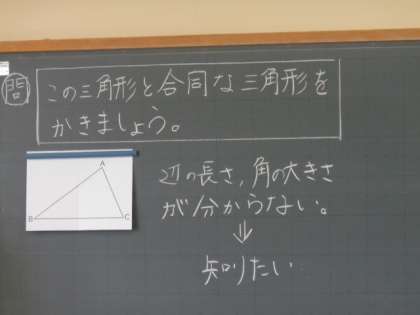 問
この三角形と合同な三角形を
かきましょう。
A
B
C
辺の長さ,角の大きさ
が分からない。
⇓
知りたい